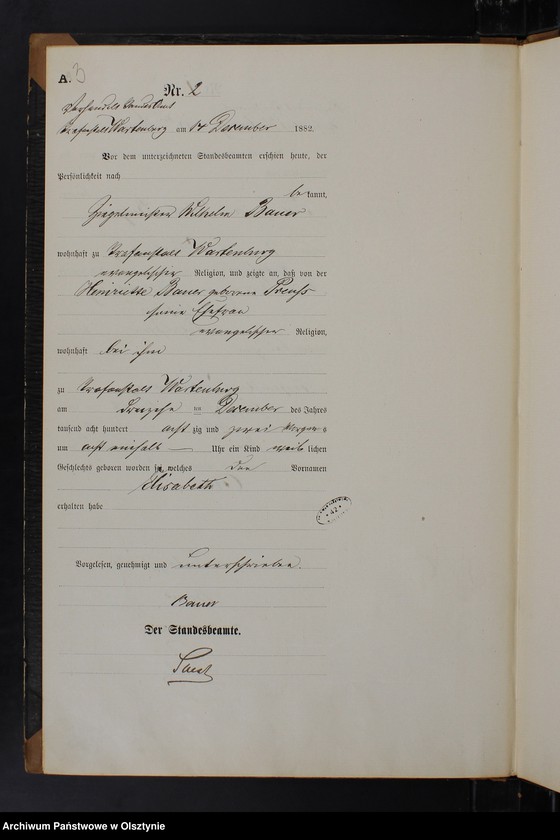 A. 3
Nr. 2
Standes Amt
Strafanstalt Wartenburg am 14 Dezember 1882.
Vor dem unterzeichneten Standesbeamten erschien heute, der
Persönlichkeit nach
bekannt,
Ziegelmeister Wilhelm Bauer
wohnhaft zu Strafanstalt Wartenburg
evangelischer Religion, und zeigte an, daß von der
Henriette Bauer geborene Preuss
seine Ehefrau
evangelischer Religion,
wohnhaft bei ihm
zu Strafanstalt Wartenburg
am Dezember des Jahres
tausend acht hundert acht zig und zwei Morgens
um acht einhalb Uhr ein Kind weiblichen
Geschlechts geboren worden sei, welches den Vornamen
Elisabeth
erhalten habe
Vorgelesen, genehmigt und unterschrieben.
Bauer
Der Standesbeamte.
Archiwum Państwowe w Olsztynie